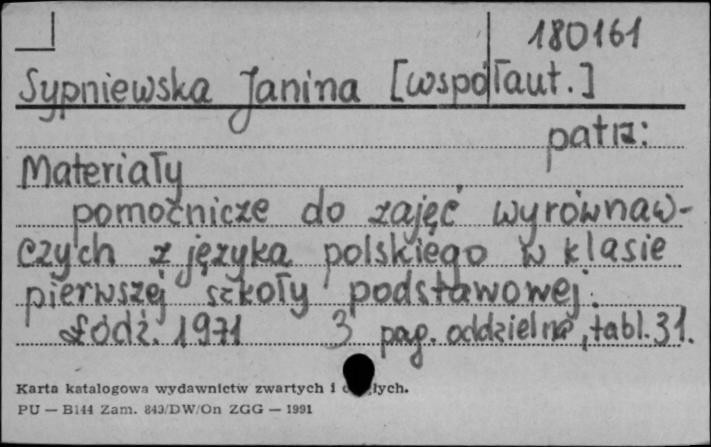 180161
Sypniewska Janina [współaut.]
patrz:
Materiały
pomocnicze do zajęć wyrównaw-
czych z języka polskiego w klasie
pierwszej szkoły podstawowej.
Łódź. 1971 3 pag. oddzielne, tabl. 31.
Karta katalogowa wydawnictw zwartych i
PU — B144 Zam. 843/DW/On ZGG — 1991